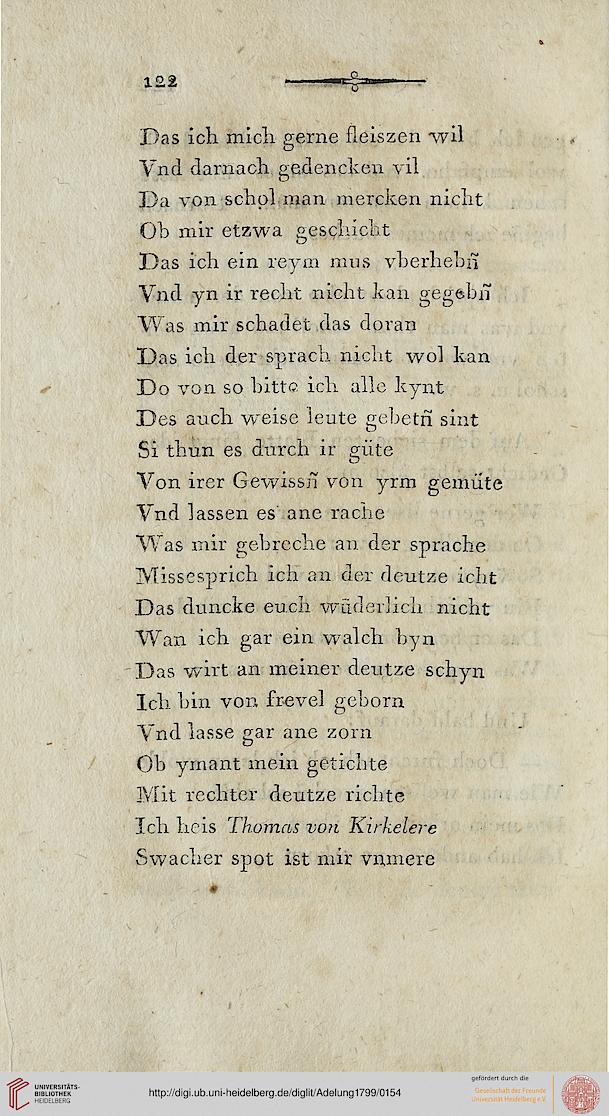 122
Das ich mich gerne fleiszen wil
Vnd darnach gedencken vil
Da von schol man mercken nicht
Ob mir etzwa geschicht
Das ich ein reym mus vberhebn̄
Vnd yn ir recht nicht kan gegebn̄
Was mir schadet das doran
Das ich der sprach nicht wol kan
Do von so bitte ich alle kynt
Des auch weise leute gebetn̄ sint
Si thun es durch ir güte
Von irer Gewissn̄ von yrm gemüte
Vnd lassen es ane rache
Was mir gebreche an der sprache
Missesprich ich an der deutze icht
Das duncke euch wūderlich nicht
Wan ich gar ein walch byn
Das wirt an meiner deutze schyn
Ich bin von frevel geborn
Vnd lasse gar ane zorn
Ob ymant mein getichte
Mit rechter deutze richte
Ich heis Thomas von Kirkelere
Swacher spot ist mir vnmere
UNIVERSITÄTS-
BIBLIOTHEK
HEIDELBERG
http://digi.ub.uni-heidelberg.de/diglit/Adelung1799/0154
gefördert durch die
Gesellschaft der Freunde
Universität Heidelberg e.V.